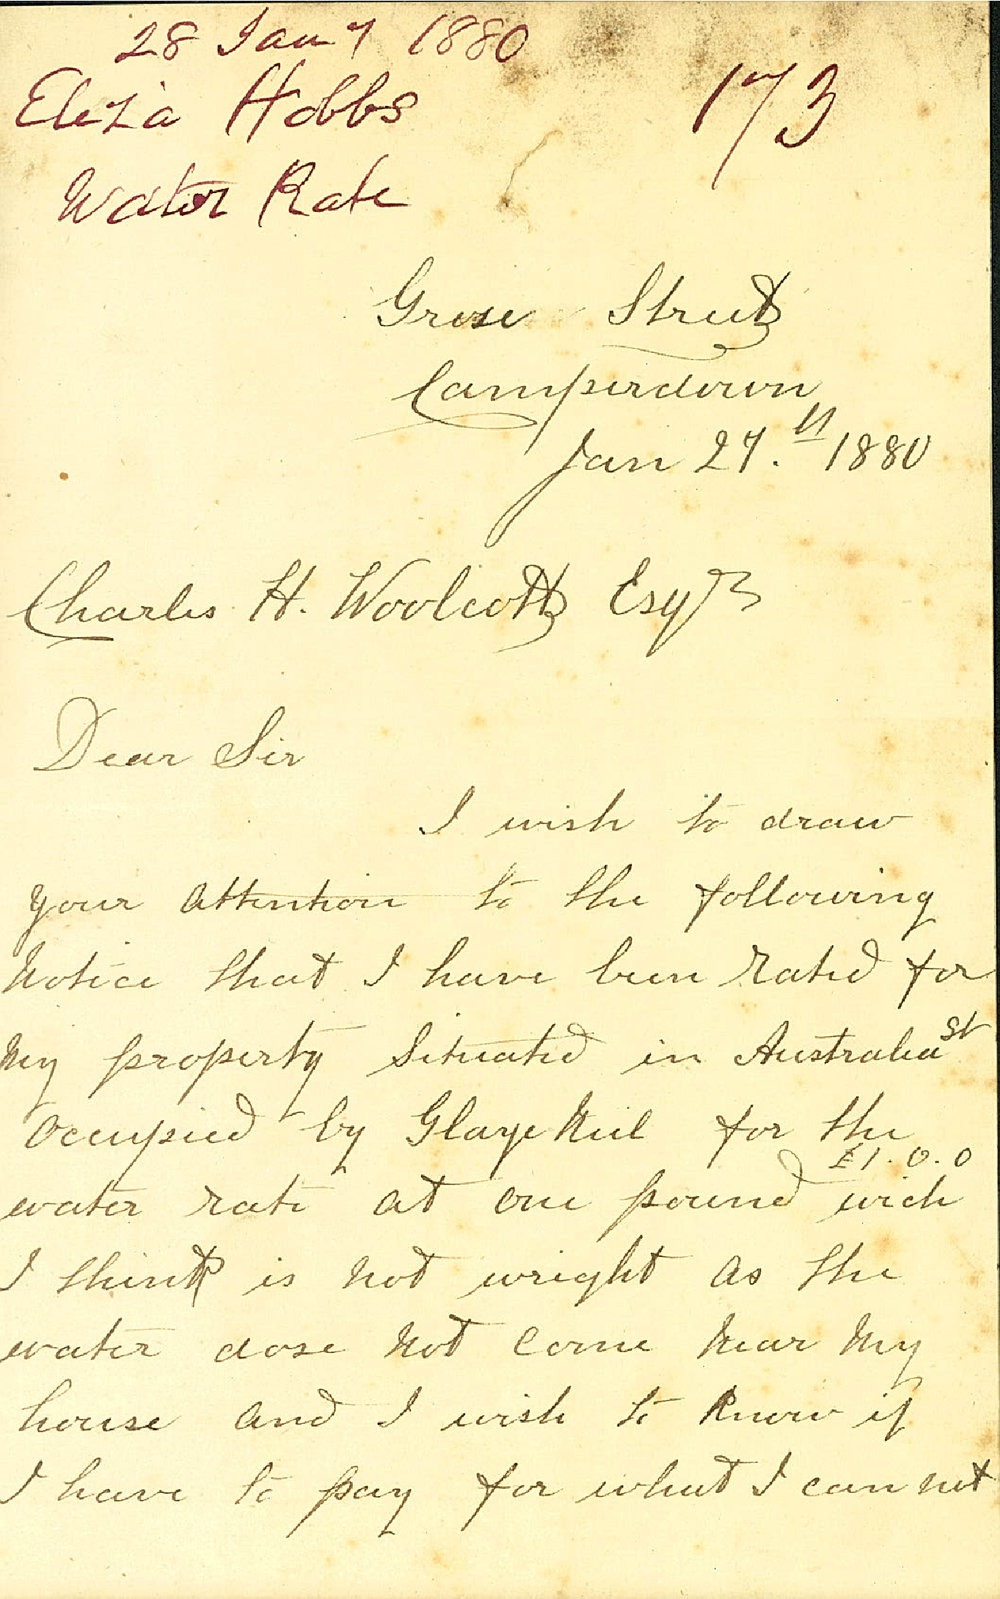 28 Jany 1880
Eliza Hobbs
173
Water Rate
Grose Street
Camperdown
Jan 27.th 1880
Charles H. Woolcott Esqr
Dear Sir
I wish to draw
your attention to the following
Notice that I have been rated for
My property Situated in Australia St
Occupied by for the
£1.0.0
water rate at one pound wich
I think is not wright as the
water dose not come near My
house and I wish to know if
I have to pay for what I can not